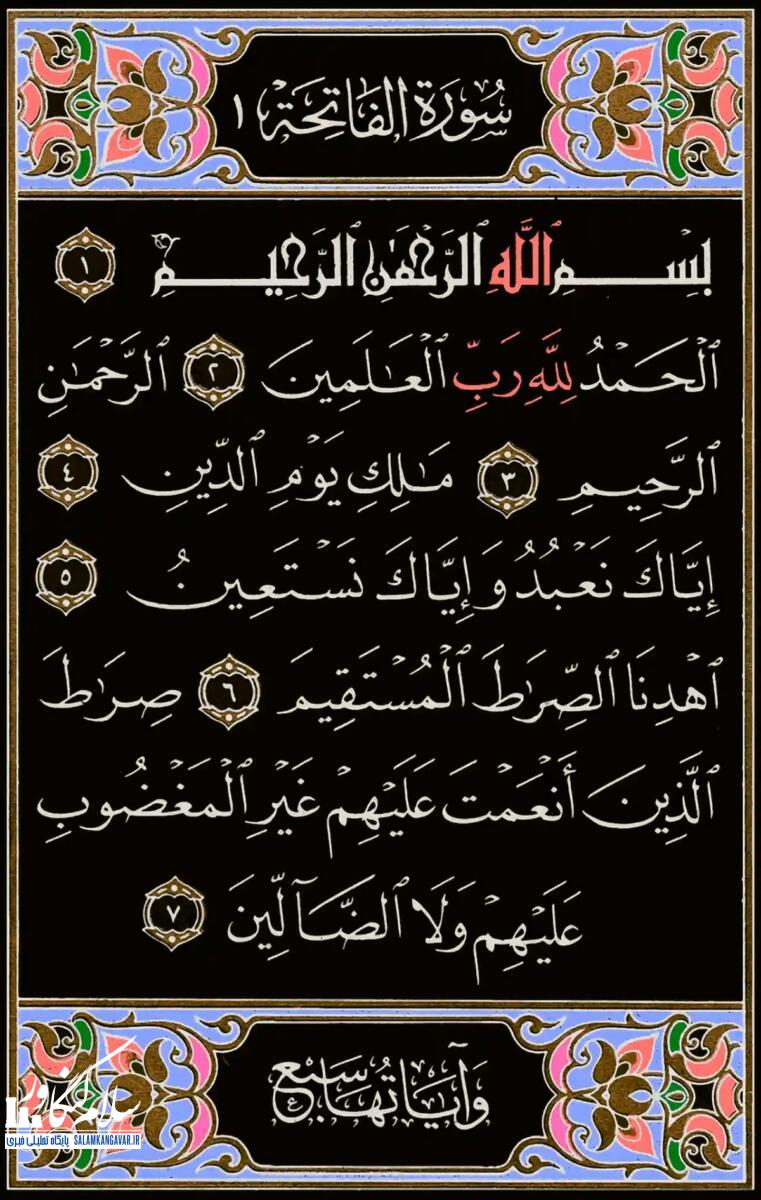 سُورَةُ الفَاتِحَةِ ١
بِسْمِ اللَّهِ الرَّحْمَٰنِ الرَّحِيمِ ١
ٱلْحَمْدُ لِلَّهِ رَبِّ ٱلْعَٰلَمِينَ ٢ ٱلرَّحْمَٰنِ
ٱلرَّحِيمِ ٣ مَٰلِكِ يَوْمِ ٱلدِّينِ ٤
إِيَّاكَ نَعْبُدُ وَإِيَّاكَ نَسْتَعِينُ ٥
ٱهْدِنَا ٱلصِّرَٰطَ ٱلْمُسْتَقِيمَ ٦ صِرَٰطَ
ٱلَّذِينَ أَنْعَمْتَ عَلَيْهِمْ غَيْرِ ٱلْمَغْضُوبِ
عَلَيْهِمْ وَلَا ٱلضَّآلِّينَ ٧
وَآيَاتُهَا سَبْعٌ
سلام کنگاور
پایگاه تحلیلی خبری SALAMKANGAVAR.IR